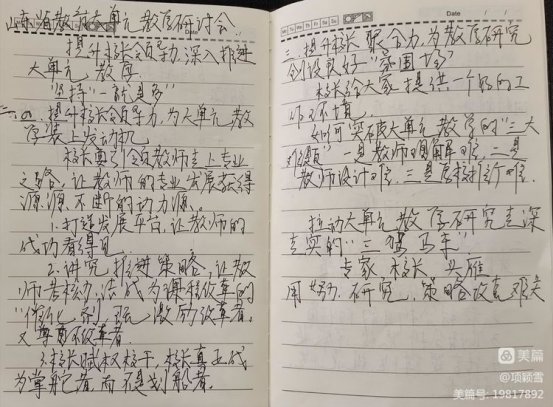 山东省教育大单元教学研讨会
提升校长领导力,深入推进
大单元教学
坚持"一就是多"
二、提升校长领导力,为大单元教
学装上发动机
校长要引领教师走上专业
之路,让教师的专业发展获得
源源不断的动力源。
1.打造发展平台,让教师的
成功看得见
2.讲究推进策略,让教
师考核办法成为课程改革的
"催化"剂,既激励改革者,
又尊重不改革者
3.校长赋权校干,校长真正成
为掌舵者而不是划船者。
Date
三、提升校长聚合力,为教学研究
创设良好"氛围场"
校长给大家提供一个好的工
作环境。
如何突破大单元教学的"三大
难题"一是教师理解难,二是
教师设计难,三是学校推行难.
推动大单元教学研究走深
走实的"三驾马车"
专家、校长、头雁
用 研究,策略攻克难关
美篇
@项颖雪
美篇号: 19817892